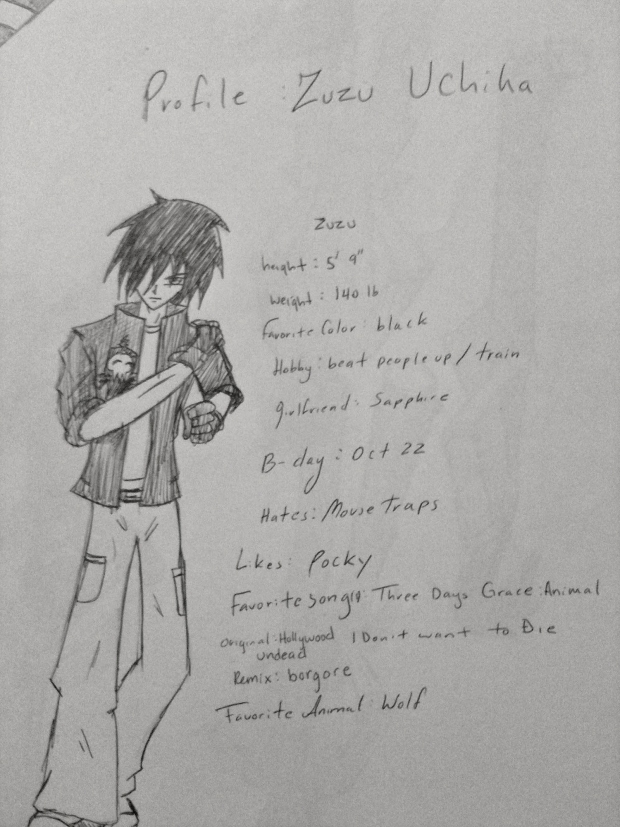 Profile : Zuzu Uchiha
Zuzu
height : 5' 9"
weight : 140 lb
Favorite Color : black
Hobby : beat people up / train
girlfriend : Sapphire
B-day : Oct 22
Hates : Mouse Traps
Likes : Pocky
Favorite song : Three Days Grace : Animal
Original : Hollywood undead I Don't want to Die
Remix : borgore
Favorite Animal : Wolf